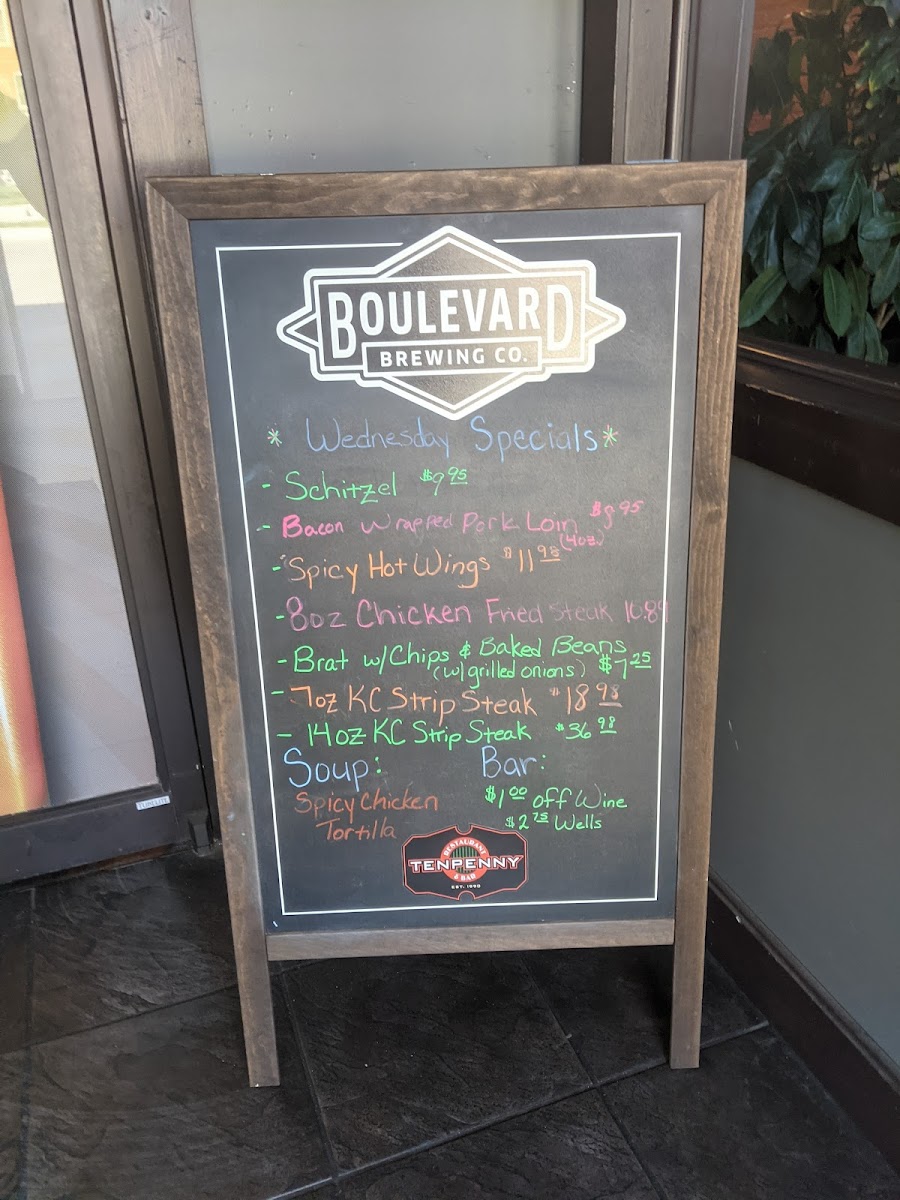 BOULEVARD
BREWING CO.
* Wednesday Specials *
- Schitzel $9.95
- Bacon Wrapped Pork Loin $9.95
(4oz.)
- Spicy Hot Wings $11.98
- 8oz Chicken Fried Steak 10.89
- Brat w/Chips & Baked Beans
(w/grilled onions) $7.25
- 7oz KC Strip Steak $18.98
- 14oz KC Strip Steak $36.98
Soup: Bar:
Spicy Chicken $1.00 off Wine
Tortilla $2.75 Wells
RESTAURANT
TENPENNY
& BAR
EST. 1993